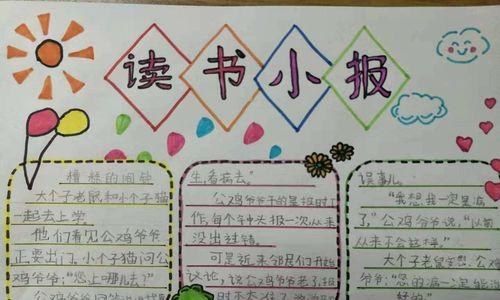 读书小报
糟糕的闹钟
大个子老鼠和小个子猫
一起去上学
他们看见公鸡爷爷
正要出门,小个子猫问公
鸡爷爷:"您上哪儿去?"
生,看病去。"
公鸡爷爷干的是报时工
作,每个钟头报一次,从来
没出过错。
可是近来邻居们开始
议论,说公鸡爷爷老了,报
误事儿。
"我想我一定是病
了,"公鸡爷爷说,"以前
从来不会这样。"
大个子老鼠看公鸡爷
爷:"您的病一定能